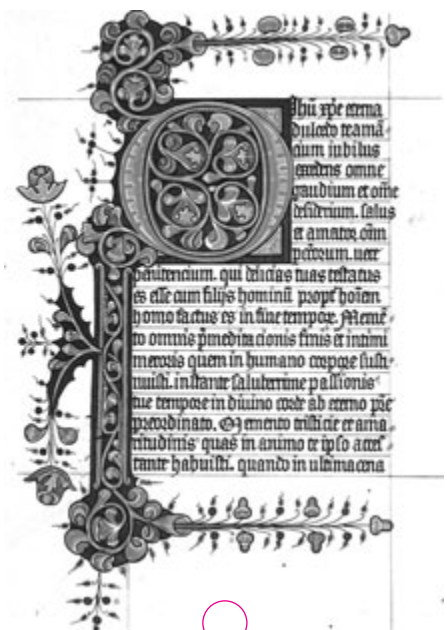 O Jhū xp̄e eterna
dulcedo te amā
cium iubilus
excedens omne
gaudium et om̄e
desiderium. salus
et amator om̄
pc̄torum. uere
penitencium. qui delicias tuas testatus
es esse cum filijs hominū propt̄ hoīem
homo factus es in fine tempor̄. Memē
to omnis p̄meditacionis finis et intimi
meroris quem in humano corpore susti-
nuisti. instante saluberrime passionis
tue tempore in diuino corde ab eterno p̄re
preordinato. Memento tristicie et ama-
ritudinis quas in animo te ipso attes-
tante habuisti. quando in ultima cena